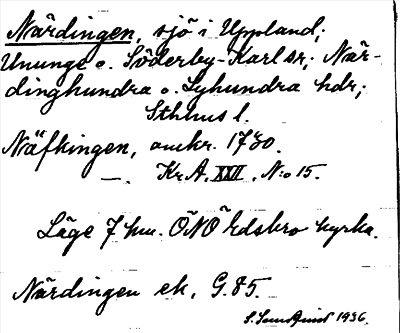 Närdingen, sjö i Uppland;
Ununge o. Söderby-Karl sr; När-
dinghundra o. Lyhundra hdr;
Sthlms l.
Näfkingen, omkr. 1730.
—„— Kr.A. XXII. N:o 15.
Läge 7 km. ÖNÖ Edsbro kyrka.
Närdingen ek. G.85.
1936.